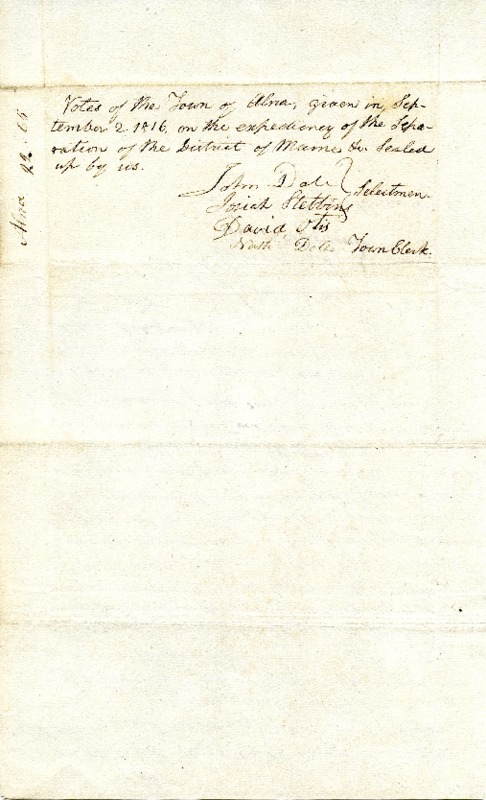 Votes of the Town of Alna, given in Sep-
tember 2 1816, on the expediency of the Sepa-
ration of the District of Maine &c Sealed
up by us.
John Dole
Josiah Stebbins
David Otis
Selectmen.
Dole Town Clerk.
Alna 22 65